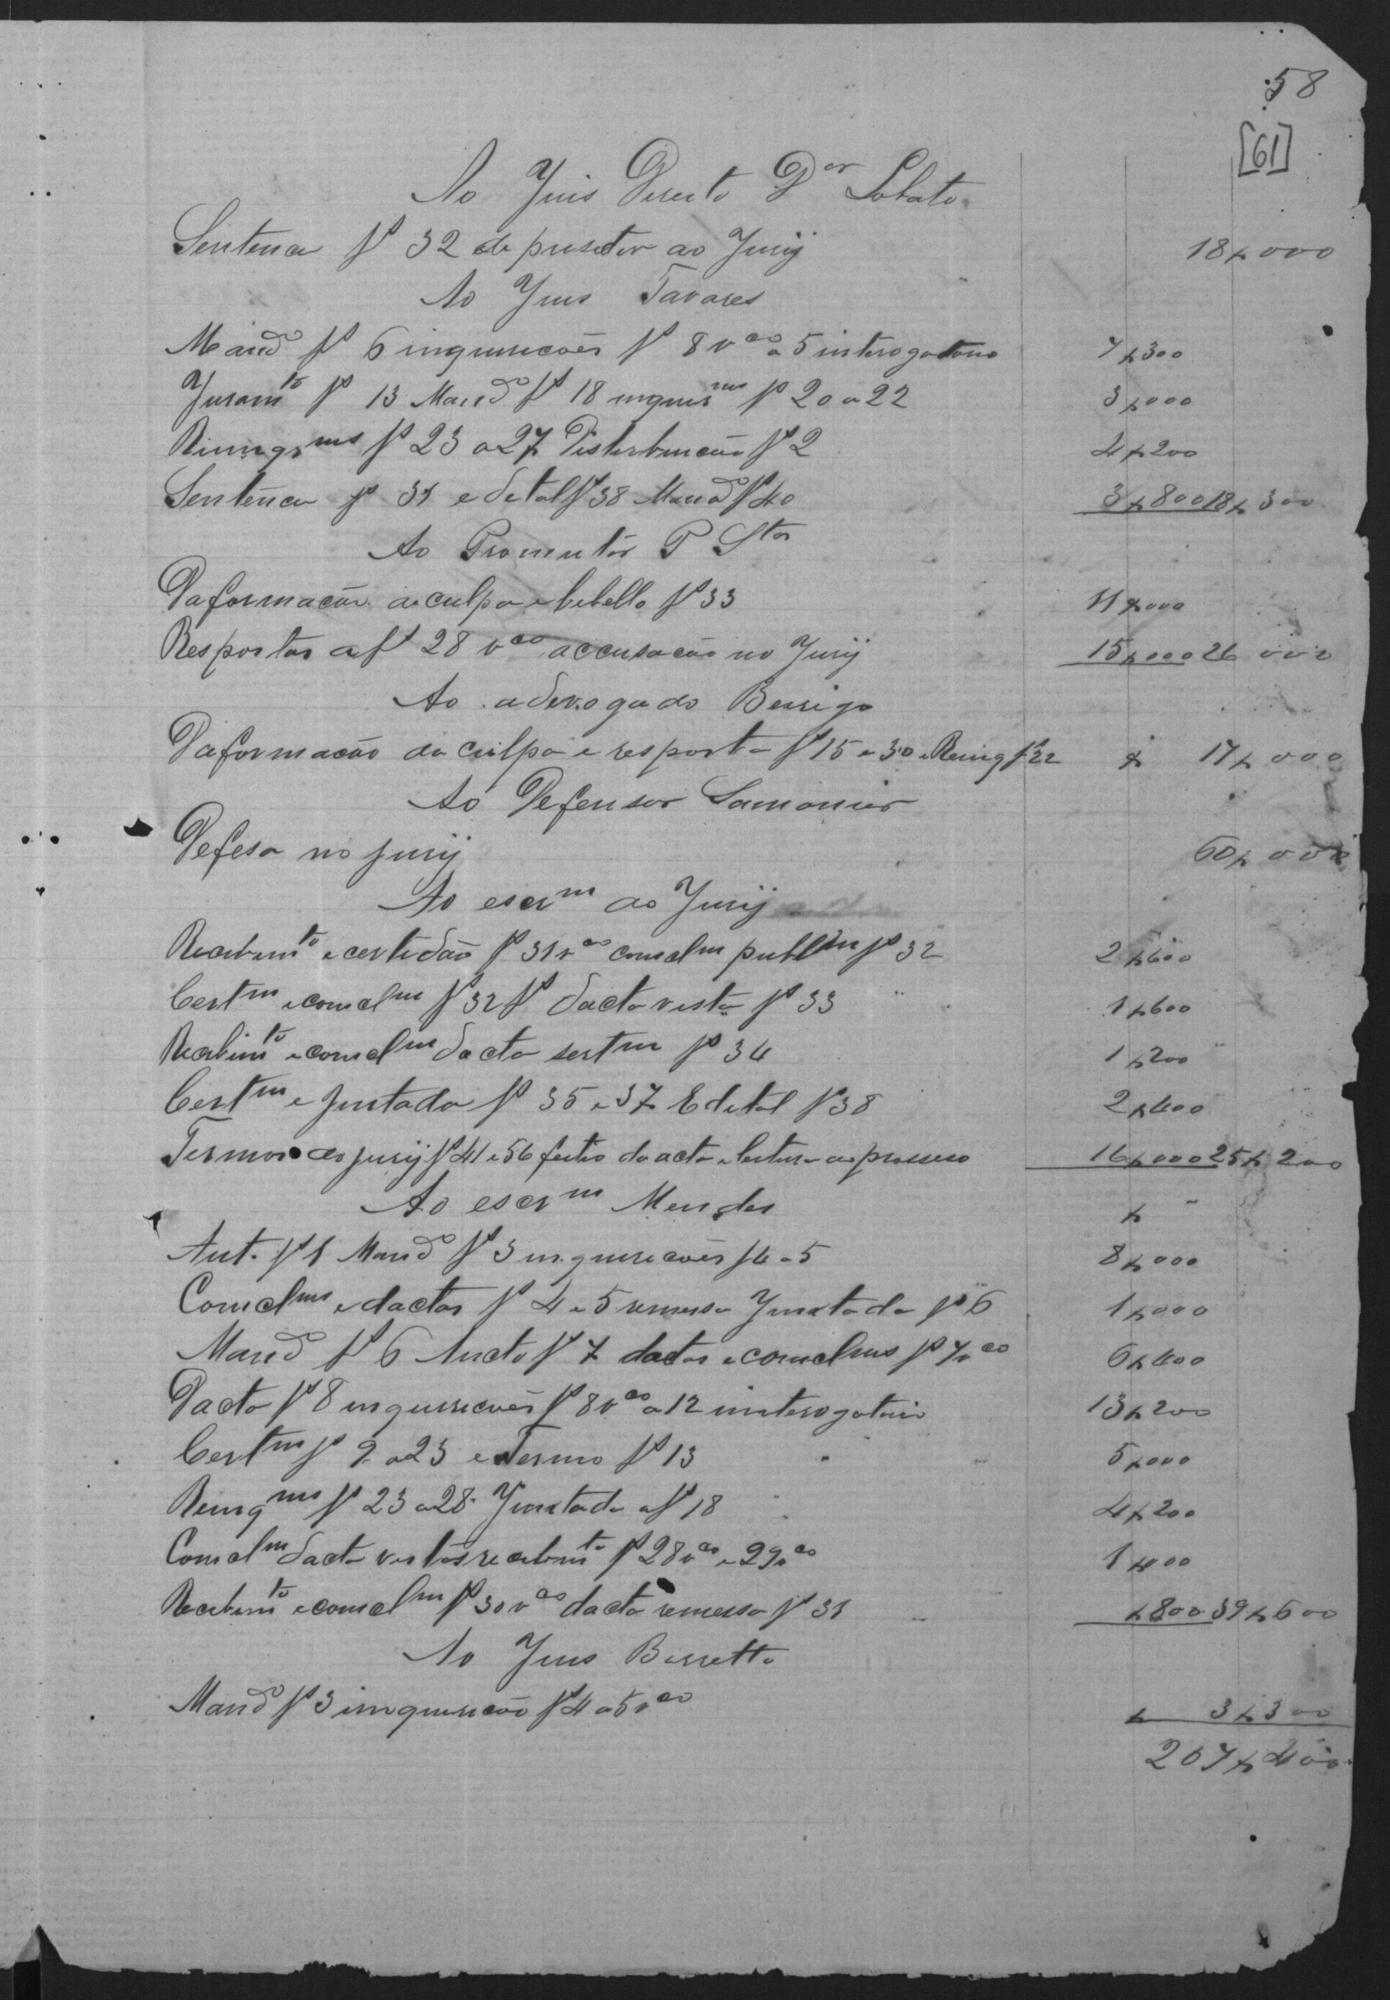 58
[61]
Ao Juis Direito Dor Lobato
Sentenca fs 32 de presedir ao Jurij 18$000
Ao Juis Tavares
Mando fs 6 inquiricoẽs fs 8 vco a 5 interogatorio 7$300
Juramto fs 13 Mando fs 18 inquirms fs 20 a 22 3$000
Reinqrms fs 23 a 27 Distribuicão fs 2 4$200
Sentenca fs 31 edital fs 38 Mando fs 40 3$800 18$300
Ao Promutôr P Stos
Da formacão da culpa e libello fs 33 11$000
Respostas a fs 28 vco accusacão no Jurij 15$000 26 000
Ao advogado Berrigo
Da formacão da culpa e resposta fs 15 e 30 e Reinq fs 22 $ 17$000
Ao Defensor Lamonier
Defesa no jurij 60$000
Ao escrm do Jurij
Recebimto e certidão fs 31 vco conclm publm fs 32 2$600
Certm e conclm fs 32 fs dacta vista fs 33 1$600
Recebimto e conclm dacta sertm fs 34 1$200
Certm e juntada fs 35 e 37 Edital fs 38 2$400
Termos do jurij fs 41 e 56 feitio da acta e leitura do prosseso 16$000 25$200
Ao escrm Mendes $
Aut. fs 1 Mando fs 3 inquiricoẽs f 4 a 5 8$000
Conclms e dactas fs 4 e 5 remessa Juntada fs 6 1$000
Mando fs 6 Aucto fs 7 dactas e conclms fs 7 vco 6$400
Dacta fs 8 inquiricoẽs fs 8 vco a 12 interogatorio 13$200
Certm fs 9 a 23 e Termo fs 13 5$000
Reinqms fs 23 a 28 Juntada a fs 18 4$200
Conclm dacta vistas recebimto fs 28 vco e 29 vco 1 400
Recebimto e conclm fs 30 vco dacta remessa fs 31 $800 39$600
Ao Juis Barretto
Mando fs 3 inquiricão fs 4 a 5 vco $ 3$300
207$400